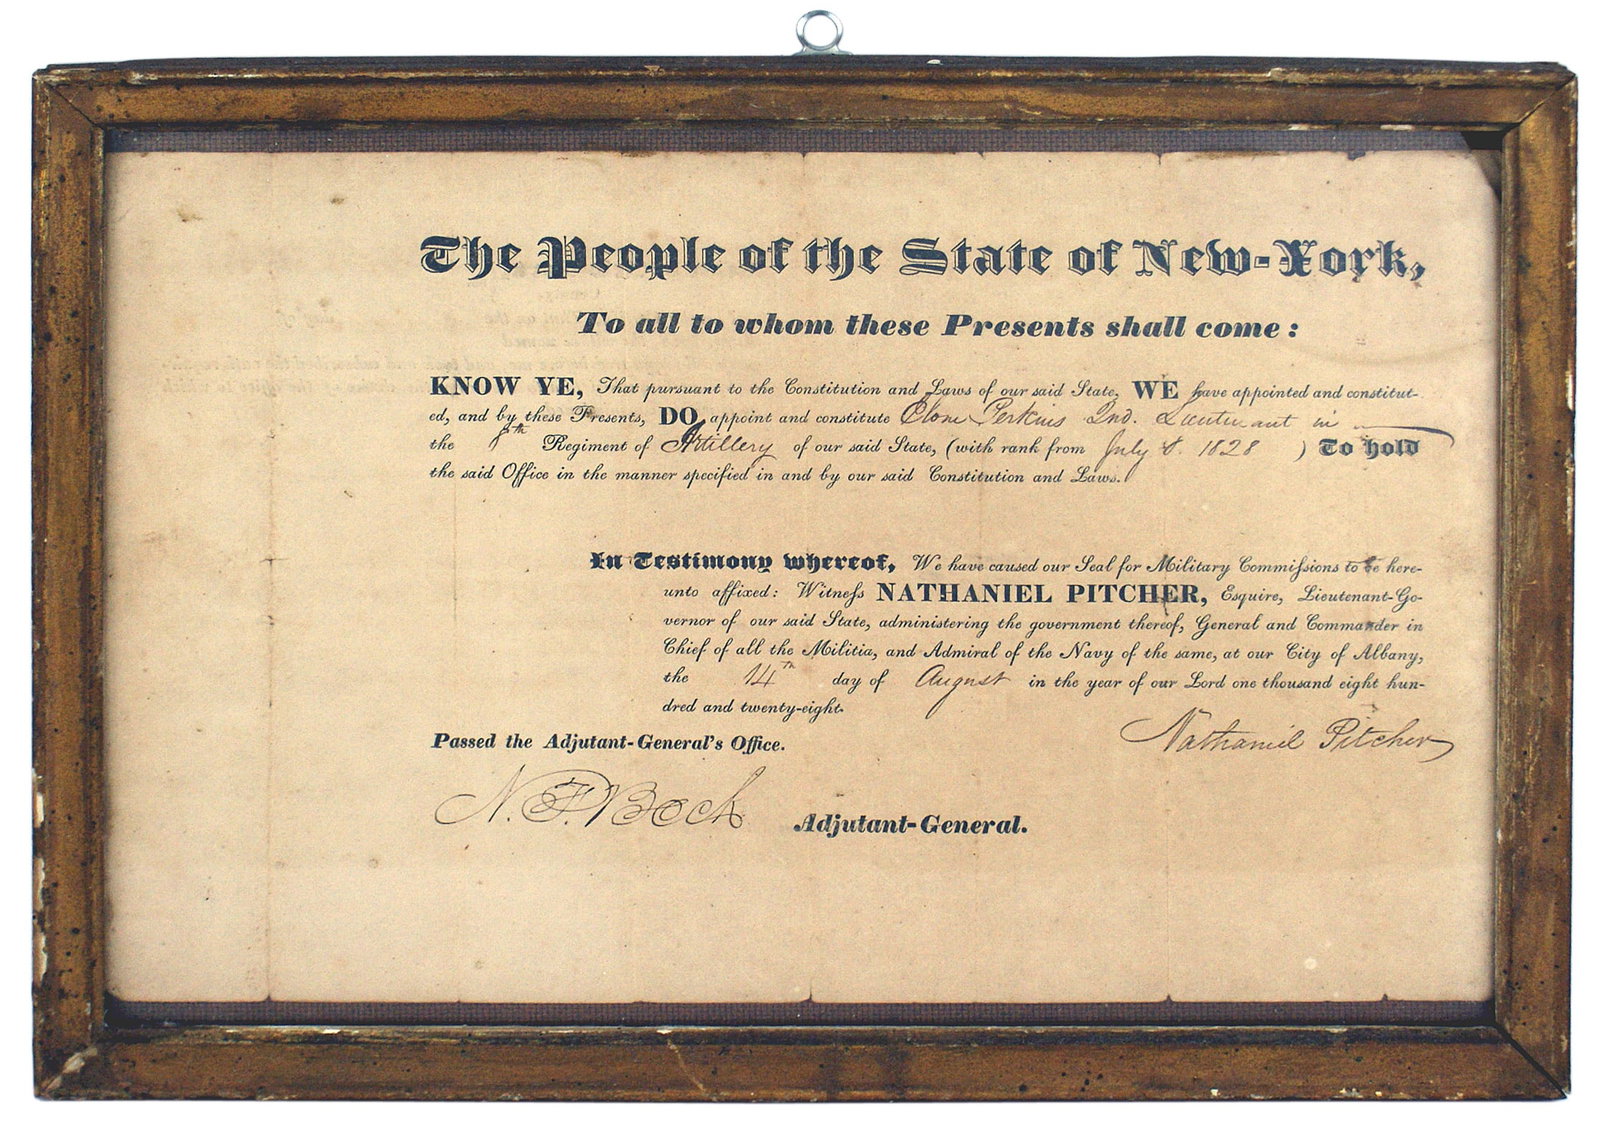 The People of the State of New-York,
To all to whom these Presents shall come:
KNOW YE, That pursuant to the Constitution and Laws of our said State, WE have appointed and constitut-
ed, and by these Presents, DO appoint and constitute Perkins 2nd. Lieutenant in
the 8th Regiment of Artillery of our said State, (with rank from July 8. 1828 ) To hold
the said Office in the manner specified in and by our said Constitution and Laws.
In Testimony whereof, We have caused our Seal for Military Commiſsions to be here-
unto affixed: Witneſs NATHANIEL PITCHER, Esquire, Lieutenant-Go-
vernor of our said State, administering the government thereof, General and Commander in
Chief of all the Militia, and Admiral of the Navy of the same, at our City of Albany,
the 14th day of August in the year of our Lord one thousand eight hun-
dred and twenty-eight.
Nathaniel Pitcher
Passed the Adjutant-General's Office.
N. F. Beck Adjutant-General.